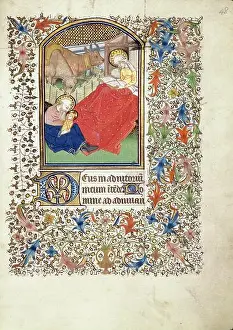 48
Deus in adiutoriũ
meum intẽde Do
mine ad adiuuan